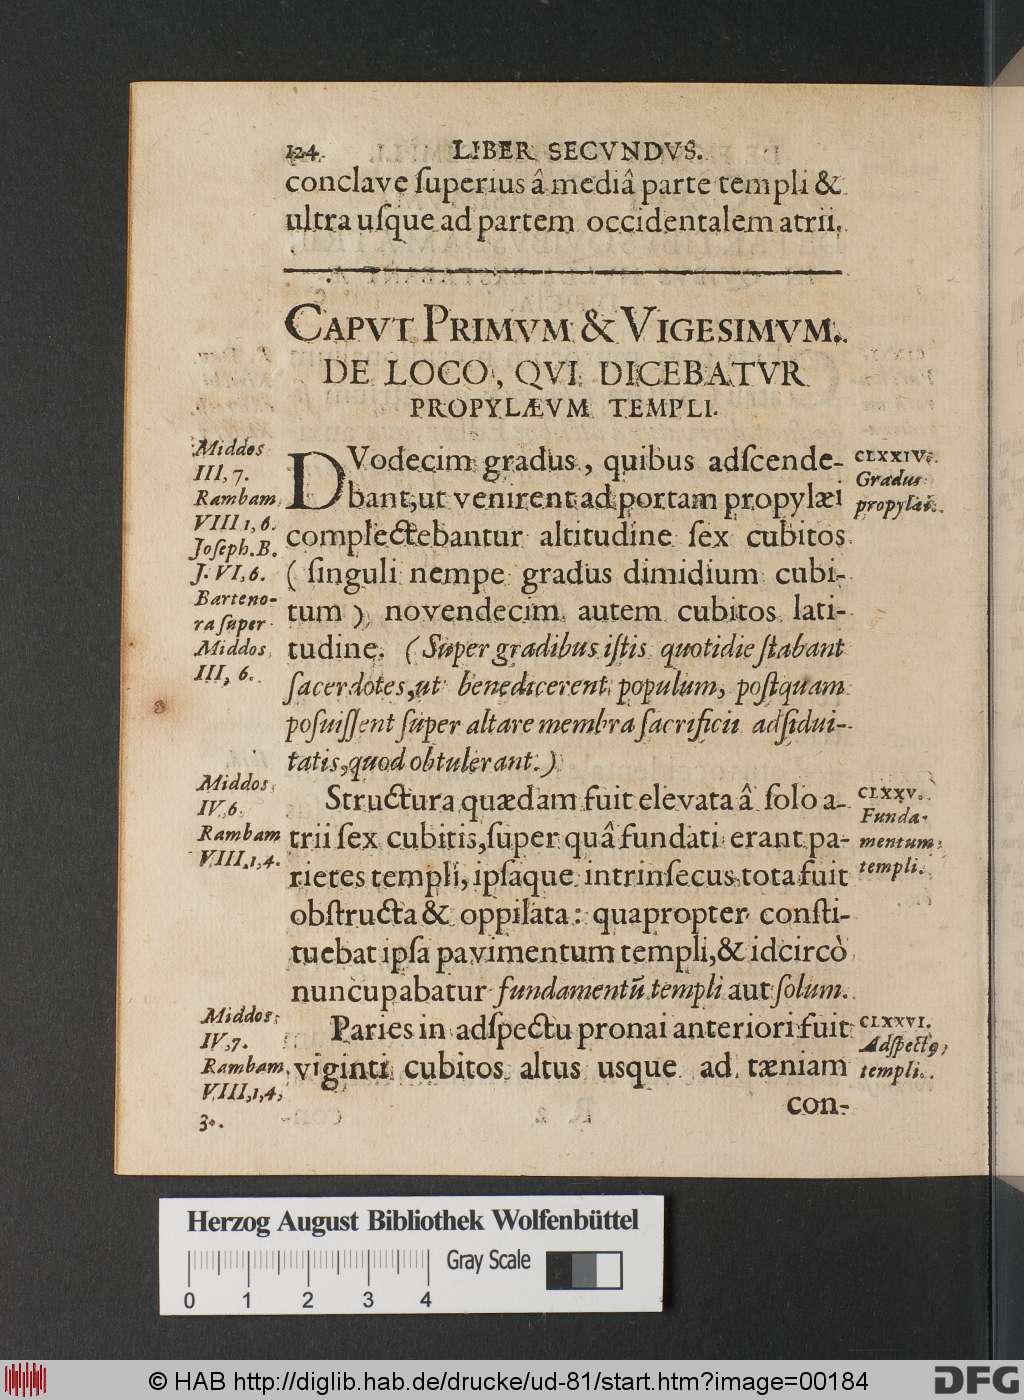 124. LIBER SECVNDVS.
conclave ſuperius â mediâ parte templi &
ultra uſque ad partem occidentalem atrii.
CAPVT PRIMVM & VIGESIMVM.
DE LOCO, QVI DICEBATVR
PROPYLÆVM TEMPLI.
Middos
III, 7.
Rambam
VIII 1, 6.
Joſeph. B.
J. VI, 6.
Barteno-
ra ſuper
Middos
III, 6.
DVodecim gradus, quibus adſcende-
bant, ut venirent ad portam propylæi
complectebantur altitudine ſex cubitos
(ſinguli nempe gradus dimidium cubi-
tum) novendecim autem cubitos lati-
tudine. (Super gradibus iſtis quotidie ſtabant
ſacerdotes, ut benedicerent populum, poſtquam
poſuiſſent ſuper altare membra ſacrificii adſidui-
tatis, quod obtulerant.)
CLXXIV.
Gradus
propylæi.
Middos
IV, 6.
Rambam
VIII, 1, 4.
Structura quædam fuit elevata â ſolo a-
trii ſex cubitis, ſuper quâ fundati erant pa-
rietes templi, ipſaque intrinſecus tota fuit
obſtructa & oppilata: quapropter conſti-
tuebat ipſa pavimentum templi, & idcircò
nuncupabatur fundamentū templi aut ſolum.
CLXXV.
Funda-
mentum
templi.
Middos
IV, 7.
Rambam
VIII, 1, 4,
30.
Paries in adſpectu pronai anteriori fuit
viginti cubitos altus usque ad tæniam
con-
CLXXVI.
Adſpectꝰ
templi.
Herzog August Bibliothek Wolfenbüttel
Gray Scale
0 1 2 3 4
© HAB http://diglib.hab.de/drucke/ud-81/start.htm?image=00184
DFG